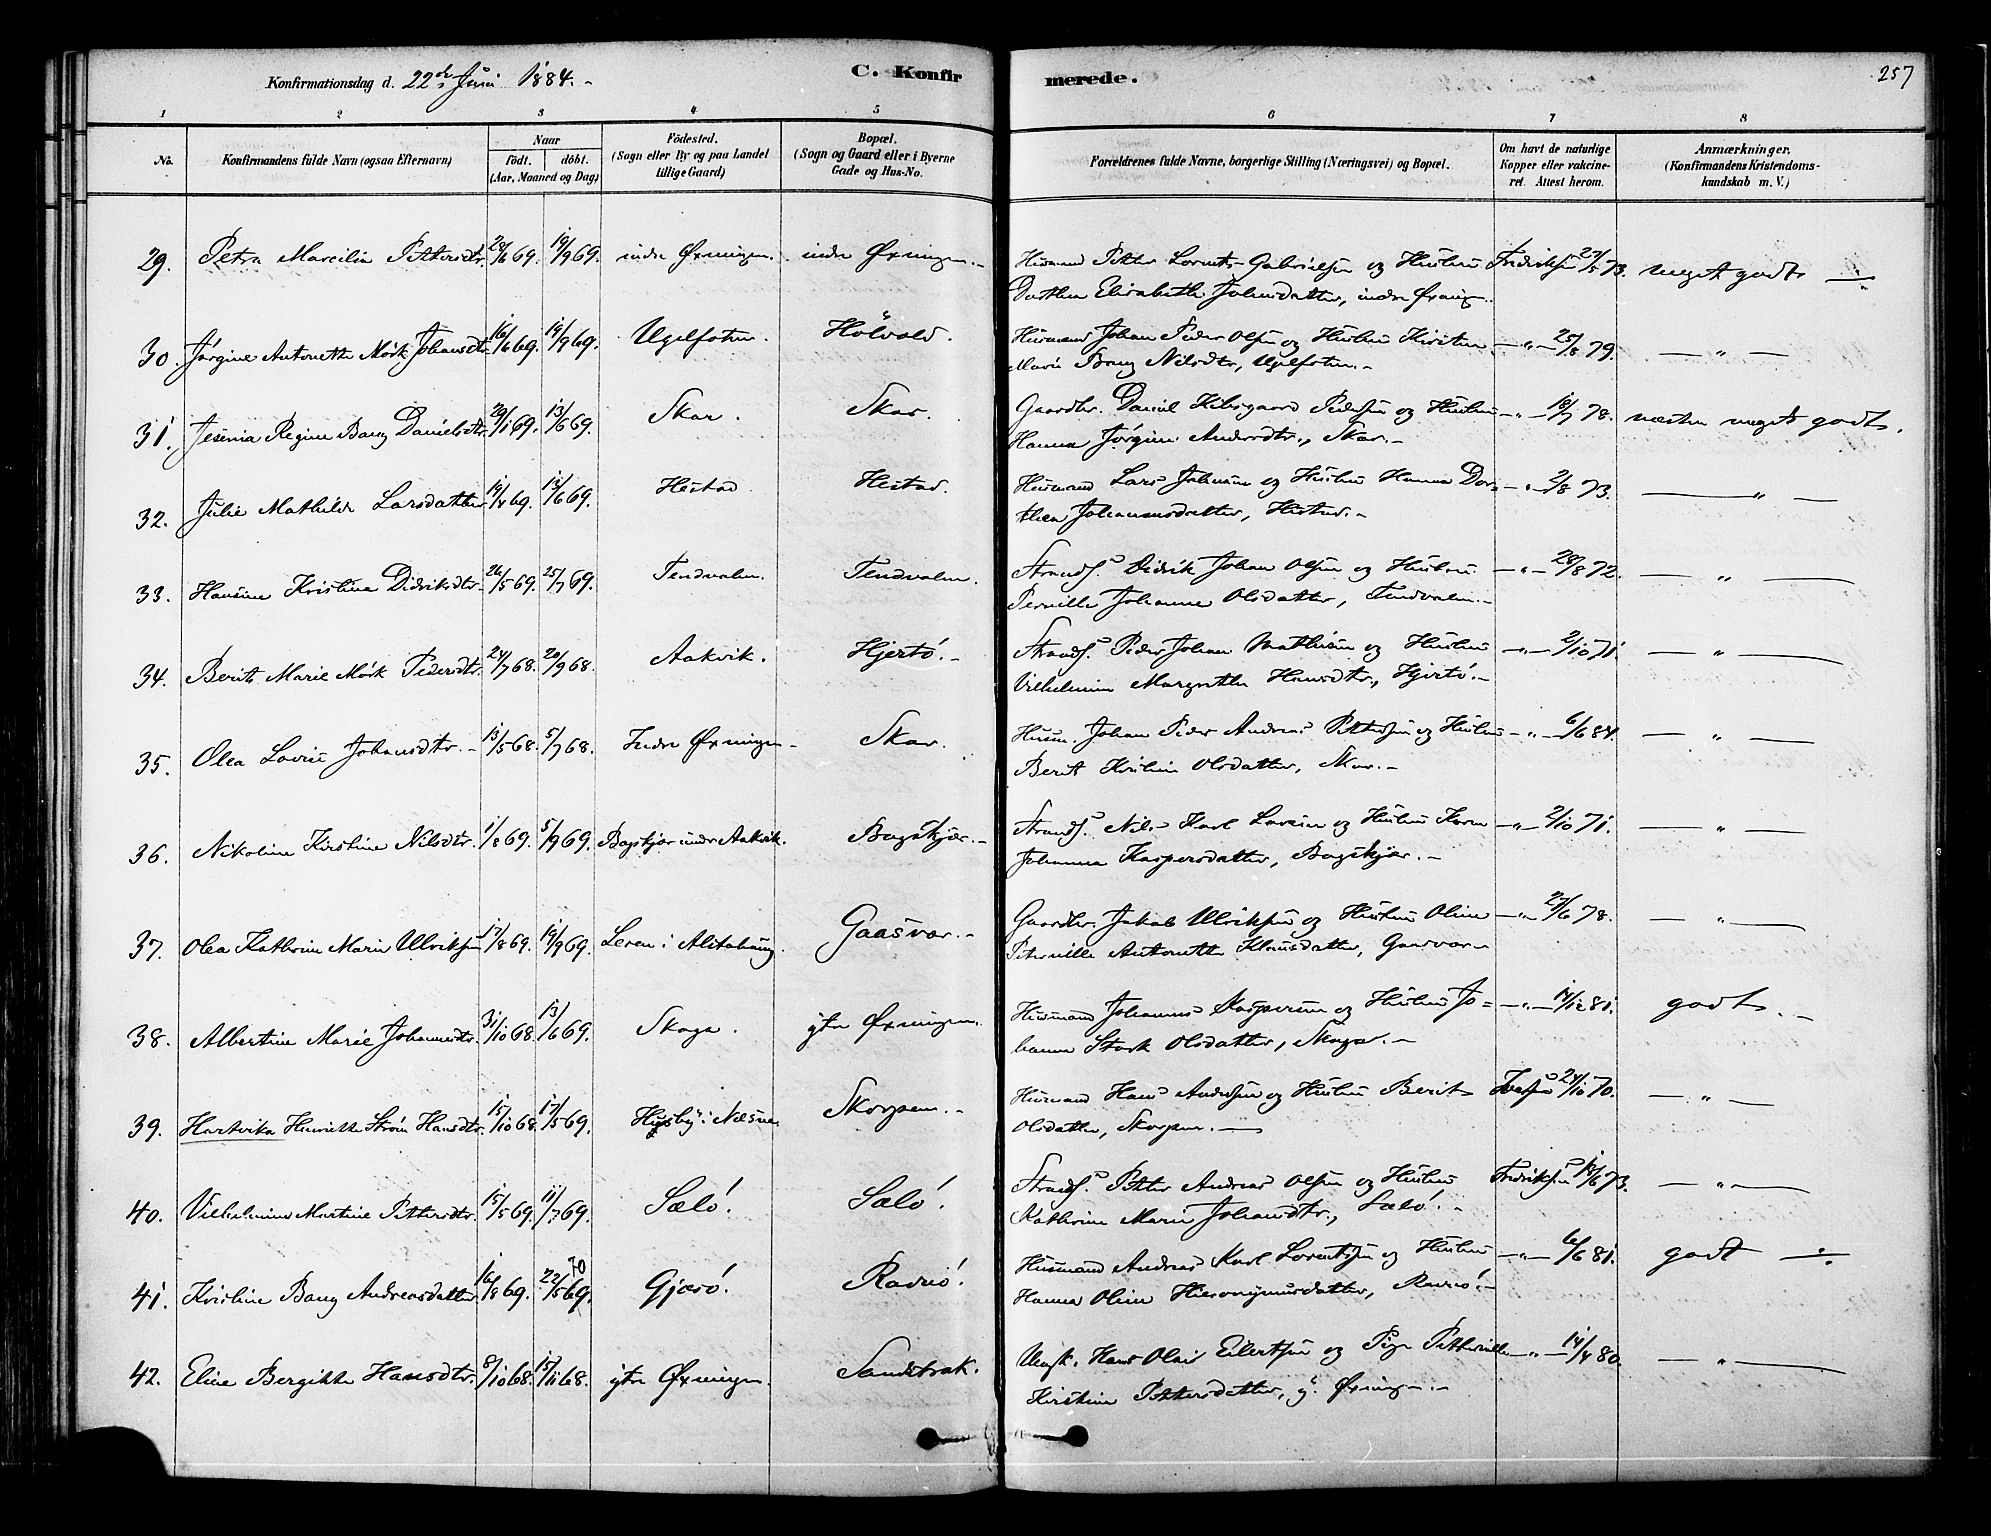 Konfirmationsdag d. 22de Juni 1884. -
C. Konfir
merede.
257
1 2 3 4 5 6 7 8
No.
Konfirmandens fulde Navn (ogsaa Efternavn)
Naar
födt. döbt.
(Aar, Maaned og Dag)
Födested.
(Sogn eller By og paa Landet
tillige Gaard)
Bopæl.
(Sogn og Gaard eller i Byerne
Gade og Hus-No.
Forældrenes fulde Navne, borgerlige Stilling (Næringsvei) og Bopæl.
Om havt de naturlige
Kopper eller vakcine-
ret. Attest herom.
Anmærkninger.
(Konfirmandens Kristendoms-
kundskab m. V.)
29. Petra Marcilia Pettersdtr. 28/6 69. 19/9 69. indre Øxningen. indre Øxningen. -
Husmand Petter Lornts Gabrielsen og Hustru
Dorthea Elisabeth Johnsdatter, indre Øxning. -
Fredriksen 27/5 73. meget godt —"—
30. Jørgine Antonette Mørk Johansdtr. 16/6 69. 19/9 69. Ugelfoten. Hölvold.
Husmand Johan Peder Olsen og Hustru Kirsten
Marie Bang Nilsdtr, Ugelfoten. -
—"— 25/8 79. —"—
31. Jesenia Regine Bang Danielsdtr. 29/1 69. 13/6 69. Skar. Skar.
Gaardbr. Daniel Kilsgaard Pedersen og Hustru
Hanna Jørgine Andersdtr., Skar. -
—"— 18/7 78. næsten meget godt.
32. Julie Mathilde Larsdatter 19/4 69. 13/6 69. Hestad Hestad.
Husmand Lars Johnsen og Hustru Hanna Dor=
thea Johannesdatter, Hestad. -
—"— 2/8 73. —"—
33. Hansine Kristina Didriksdtr. 26/5 69. 25/7 69. Tendvalen. Tendvalen.
Strands. Didrik Johan Olsen og Hustru
Pernille Johanna Olsdatter, Tendvalen. -
—"— 28/8 72. —"—
34. Berit Marie Mørk Pedersdtr. 24/7 68. 20/9 68. Aakvik. Hjertö. -
Strands. Peder Johan Mathisen og Hustru
Vilhelmine Margrethe Hansdtr., Hjertö. -
—"— 2/10 71. —"—
35. Olea Lovise Johansdtr. - 13/5 68. 5/7 68. Indre Øxningen - Skar.
Husm. Johan Peder Andreas Pettersen og Hustru
Berit Kristine Olsdatter, Skar. -
—"— 6/6 84. —"—
36. Nikoline Kirstine Nilsdtr. 1/8 69. 5/9 69. Bagskjær under Aakvik. Bagskjær. -
Strands. Nils Karl Larsen og Hustru Karen
Johanna Kaspersdatter, Bagskjær. -
—"— 2/10 71. —"—
37. Olea Kathrine Marie Ulriksen 17/8 69. 19/9 69. Leren i Alstahaug. Gaasvær. -
Gaardbr. Jakob Ulriksen og Hustru Oline
Peternille Antonette Klausdatter, Gaasvær -
—"— 27/6 78. —"—
38. Albertine Marie Johannesdtr. 31/10 68. 13/6 69. Skoga. ytre Øxningen.
Husmand Johannes Kaspersen og Hustru Jo=
hanna Stark Olsdatter, Skoga. -
—"— 14/12 81. godt. -
39. Hartvika Henriette Strøm Hansdtr. 15/10 68. 17/5 69. Husby i Næsne. Skorpen. -
Husmand Hans Andersen og Hustru Berit
Olsdatter, Skorpen. —
24/10 70. —"—
40. Vilhelmine Martine Pettersdtr. 15/5 69. 11/7 69. Sælö. Sælö.
Strands. Petter Andreas Olsen og Hustru
Kathrine Marie Johansdtr., Sælö. -
Fredriksen 18/6 73. —"—
41. Kristine Bang Andreasdatter 16/8 69. 22/5 69. 70 Gjærö. Ravnö.
Husmand Andreas Karl Lorentsen og Hustru
Hanna Oline Hieronymusdatter, Ravnö. -
—"— 6/6 81. godt —"—
42. Eline Bergitte Hansdtr. 8/10 68. 15/11 68. ytre Øxningen. Sandstrak.
Ungk. Hans Olai Eilertsen og Pige Petternille
Kirstine Pettersdatter, y. Øxning. -
—"— 14/4 80. —"—